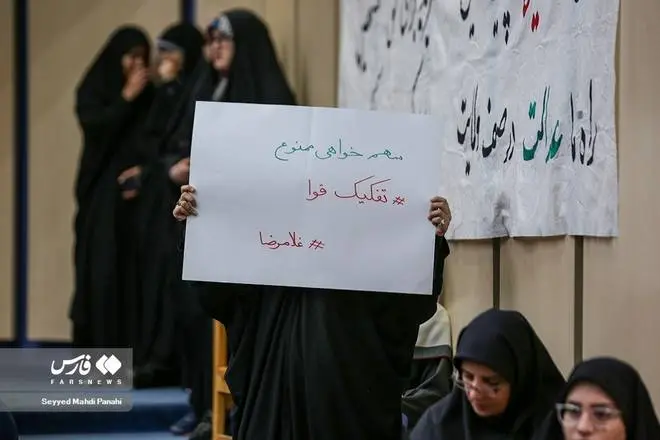 سهم خواهی ممنوع
# تفکیک قوا
# غلامرضا
راه ما عدالت در صف ولایت
فارس
FARSNEWS
Seyyed Mahdi Panahi